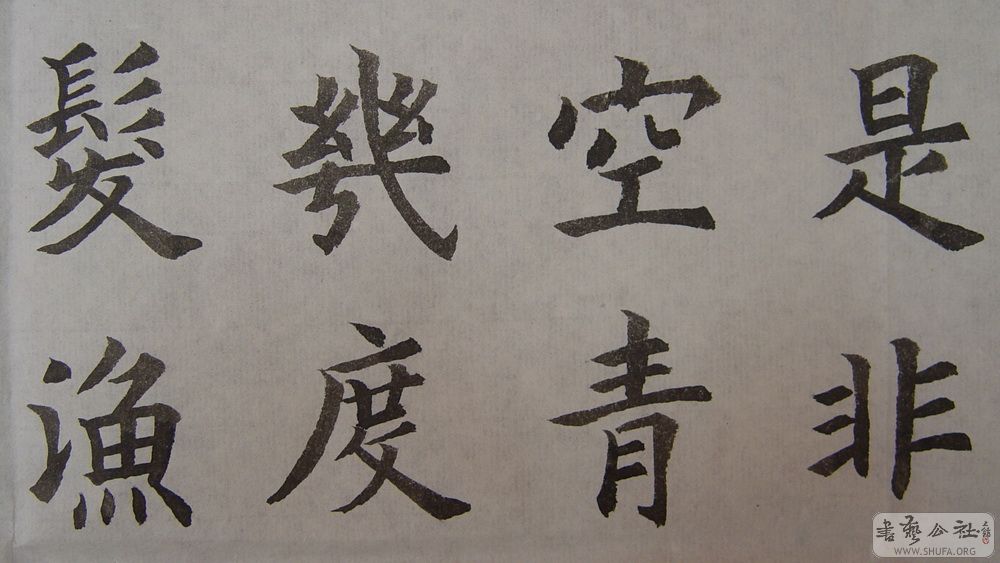 是非
空青
幾度
髮漁
書藝公社
WWW.SHUFA.ORG